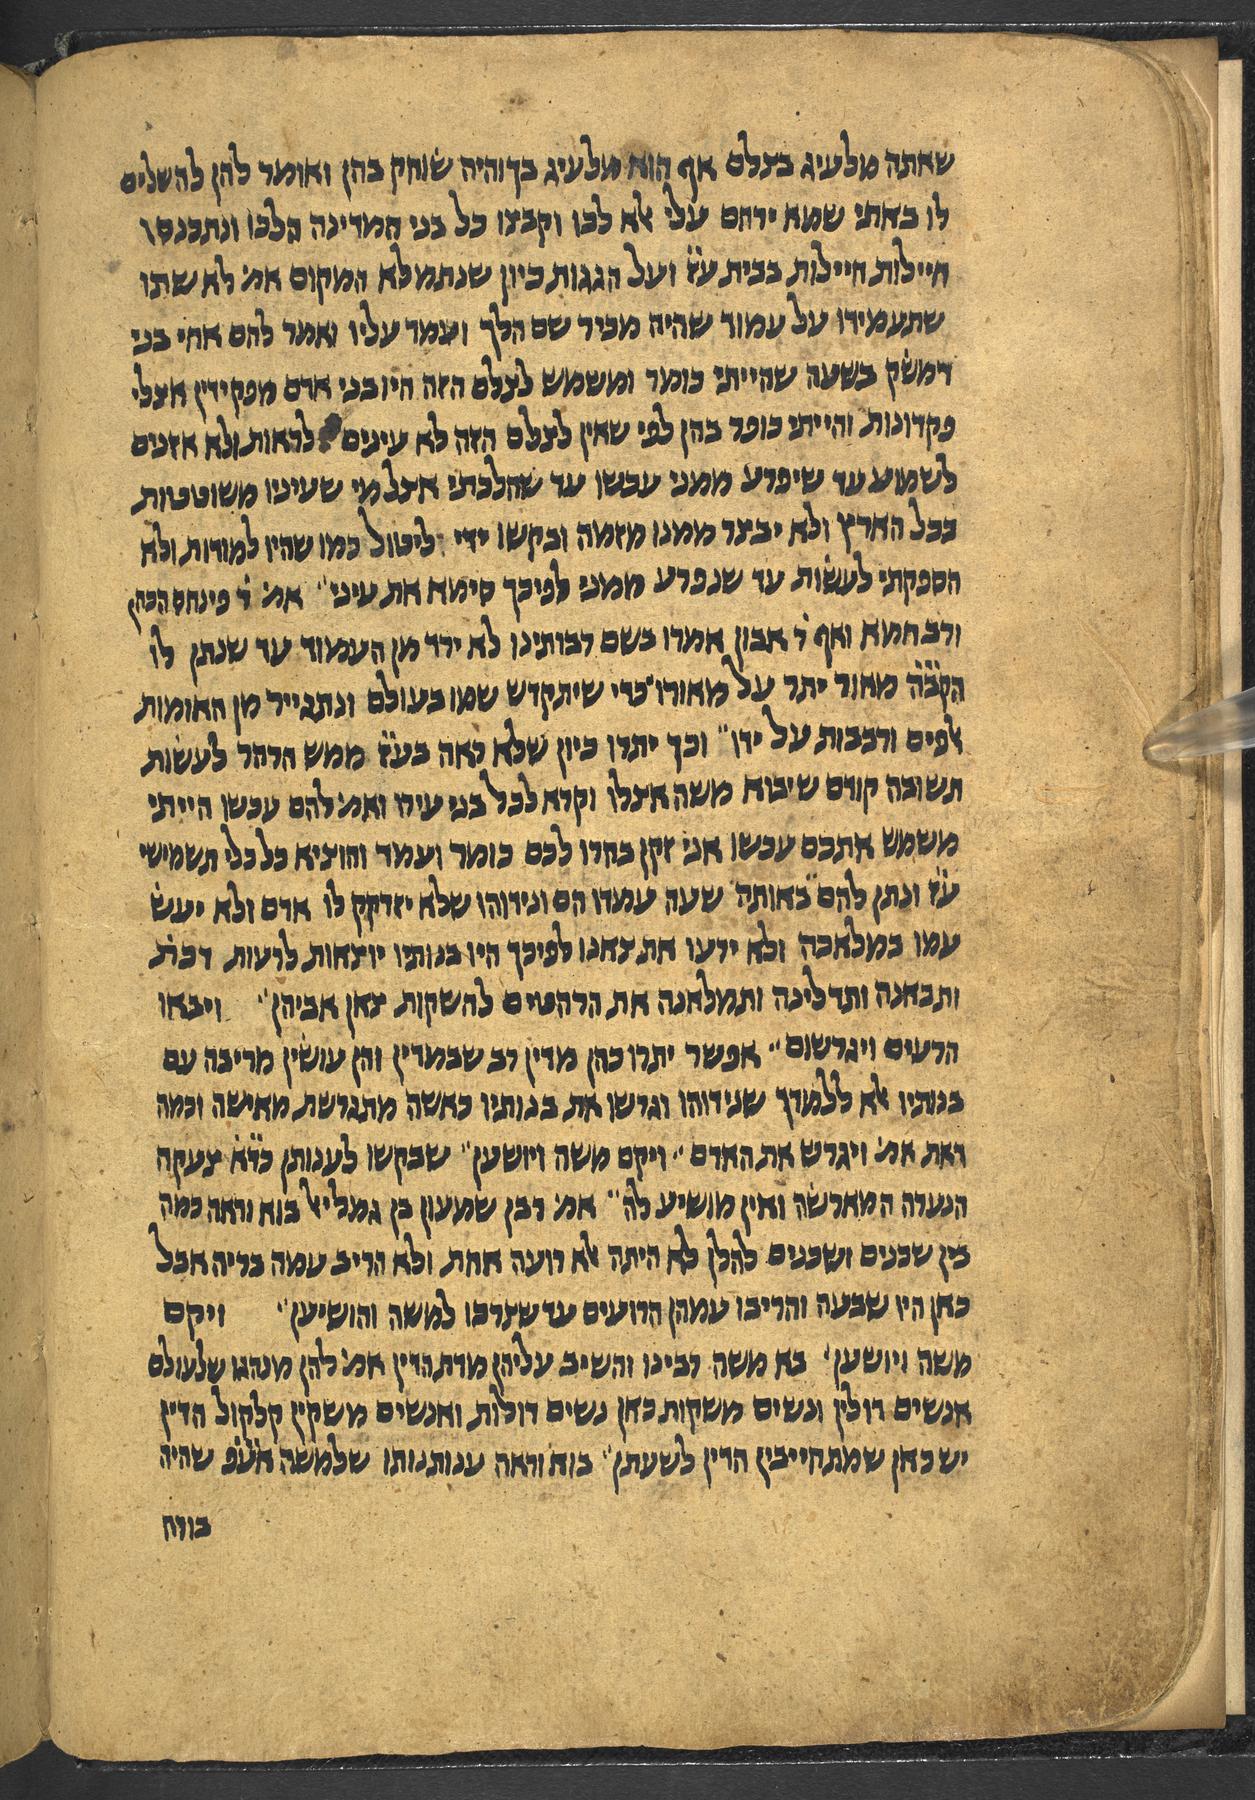 שאתה מלעיג בצלם אף הוא מלעיג בך והיה שוחק בהן ואומר להן להשלים
לו באתי שמא ירחם עלי אלא לכו וקבצו כל בני המדינה הלכו ונתכנסו
חיילות חיילות בבית ע״ז ועל הגגות כיון שנתמלא המקום אמ׳ לאשתו
שתעמידו על עמוד שהיה מכיר שם הלך ועמד עליו ואמר להם אחי בני
דמשק בשעה שהייתי כומר ומשמש לצלם הזה היו בני אדם מפקידין אצלי
פקדונות והייתי כופר בהן לפי שאין לצלם הזה לא עינים לראות ולא אזנים
לשמוע עד שיפרע ממני עכשו עד שהלכתי אצל מי שעיניו משוטטות
בכל הארץ ולא יבצר ממנו מזמה ובקשו ידי ליטול כמו שהיו למודות ולא
הספקתי לעשות עד שנפרע ממני לפיכך סימא את עיני״ אמ׳ ר׳ פינחס הכהן
ורב חמא ואף ר׳ אבון אמרו בשם רבותינו לא ירד מן העמוד עד שנתן לו
הקב״ה מאור יתר על מאורו כדי שיתקדש שמו בעולם ונתגייר מן האומות
אלפים ורבבות על ידו״ וכך יתרו כיון שלא ראה בע״ז ממש הרהר לעשות
תשובה קודם שיבוא משה אצלו וקרא לכל בני עירו ואמ׳ להם עכשו הייתי
משמש אתכם עכשו אני זקן בחרו לכם כומר ועמד והוציא כל כלי תשמישי
ע״ז ונתן להם באותה שעה עמדו הם ונידוהו שלא יזדקק לו אדם ולא יעש
עמו במלאכה ולא ירעו את צאנו לפיכך היו בנותיו יוצאות לרעות דכת׳
ותבאנה ותדלינה ותמלאנה את הרהטים להשקות צאן אביהן״ ויבאו
הרעים ויגרשום״ אפשר יתרו כהן מדין רב שבמדין והן עושין מריבה עם
בנותיו אלא ללמדך שנידוהו וגרשו את בנותיו כאשה מתגרשת מאישה וכמה
דאת אמ׳ ויגרש את האדם״ ויקם משה ויושען״ שבקשו לענותן כד״א צעקה
הנערה המארשה ואין מושיע לה״ אמ׳ רבן שמעון בן גמליאל בוא וראה כמה
בין שכנים לשכנים להלן לא היתה אלא רועה אחת ולא הריב עמה בריה אבל
כאן היו שבעה והריבו עמהן הרועים עד שצרכו למשה והושיען״ ויקם
משה ויושען׳ בא משה רבינו והשיב עליהן מדת הדין אמ׳ להן מנהגו שלעולם
אנשים דולין ונשים משקות כאן נשים דולות ואנשים משקין קלקול הדין
יש כאן שמתחייבין הדין לשעתן״ בוא וראה ענותנותו שלמשה אע״פ שהיה
בורח